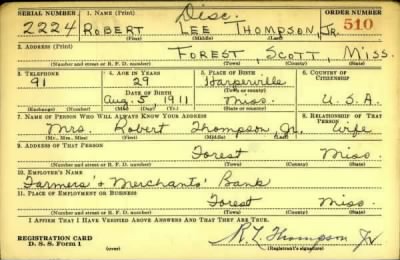 SERIAL NUMBER 1. NAME (Print) Disc. ORDER NUMBER
2224 ROBERT LEE THOMPSON, JR. 510
(First) (Middle) (Last)
2. ADDRESS (Print)
FOREST, SCOTT, MISS.
(Number and street or R. F. D. number) (Town) (County) (State)
3. TELEPHONE 4. AGE IN YEARS 5. PLACE OF BIRTH 6. COUNTRY OF CITIZENSHIP
91 29 Harperville
DATE OF BIRTH (Town or county)
Aug. 5 1911 Miss. U.S.A.
(Exchange) (Number) (Mo.) (Day) (Yr.) (State or country)
7. NAME OF PERSON WHO WILL ALWAYS KNOW YOUR ADDRESS 8. RELATIONSHIP OF THAT PERSON
Mrs Robert Thompson, Jr. Wife
(Mr., Mrs., Miss) (First) (Middle) (Last)
9. ADDRESS OF THAT PERSON
Forest Miss.
(Number and street or R. F. D. number) (Town) (County) (State)
10. EMPLOYER'S NAME
Farmers' & Merchants' Bank
11. PLACE OF EMPLOYMENT OR BUSINESS
Forest Miss.
(Number and street or R. F. D. number) (Town) (County) (State)
I AFFIRM THAT I HAVE VERIFIED ABOVE ANSWERS AND THAT THEY ARE TRUE.
REGISTRATION CARD
D. S. S. Form 1 (over) R L Thompson Jr
(Registrant's signature)